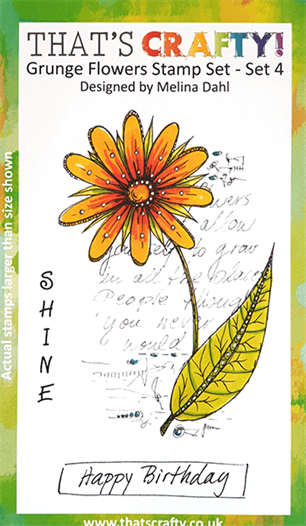 THAT'S CRAFTY!
Grunge Flowers Stamp Set - Set 4
Designed by Melina Dahl
Actual stamps larger than size shown
flowers
allow
yourself to grow
in all the places
People thought
you never
would
SHINE
Happy Birthday
www.thatscrafty.co.uk